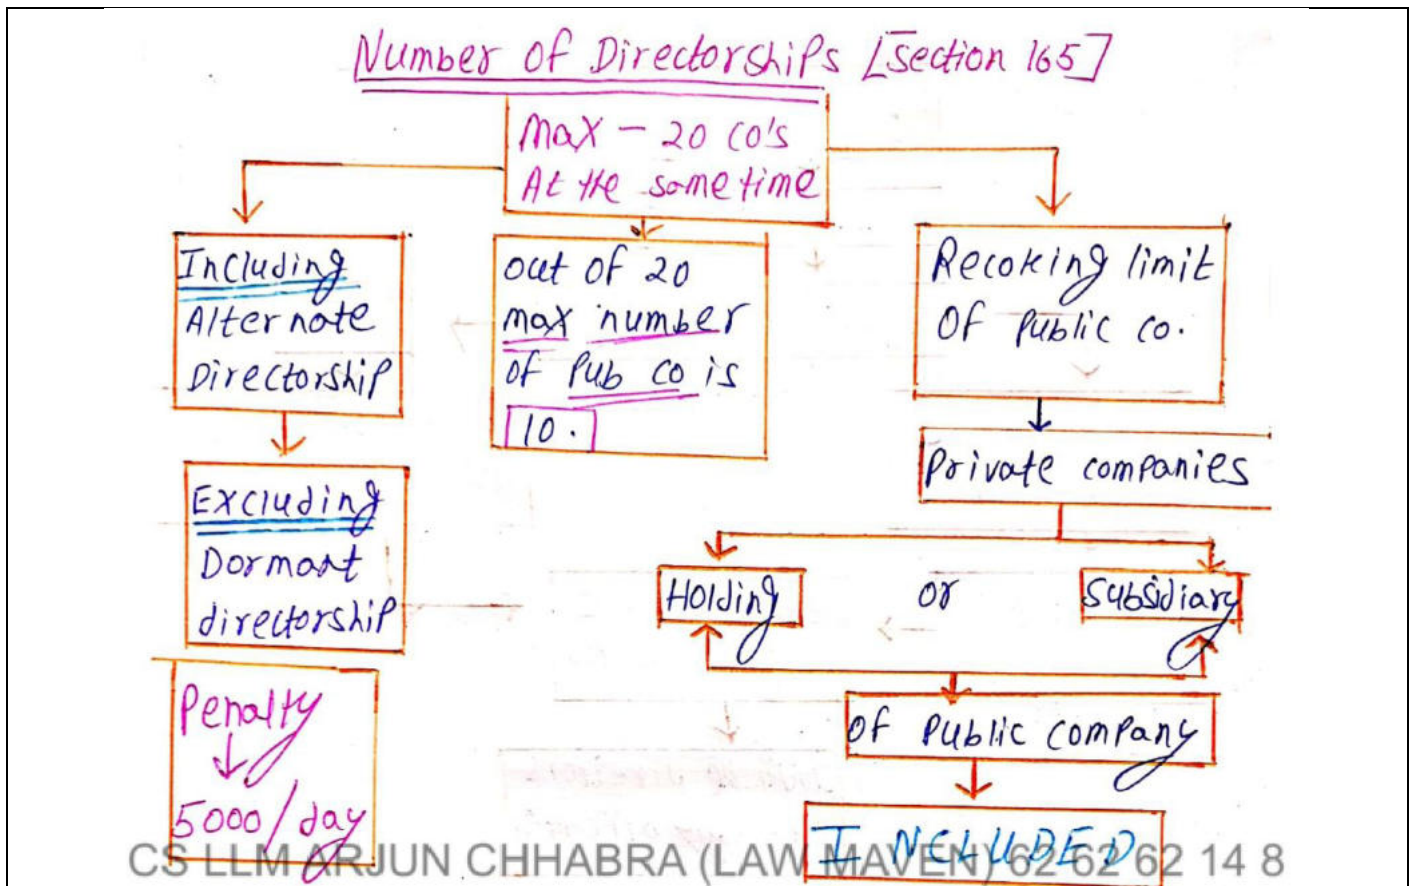 Number of Directorships [Section 165]
Max - 20 co's
At the same time
Including
Alternate
Directorship
Excluding
Dormant
directorship
Penalty
5000/day
out of 20
max number
of Pub co is
10.
Recoking limit
Of Public co.
Private companies
Holding or Subsidiary
of Public company
INCLUDED
CS LLM ARJUN CHHABRA (LAW MAVEN) 62 62 62 14 8